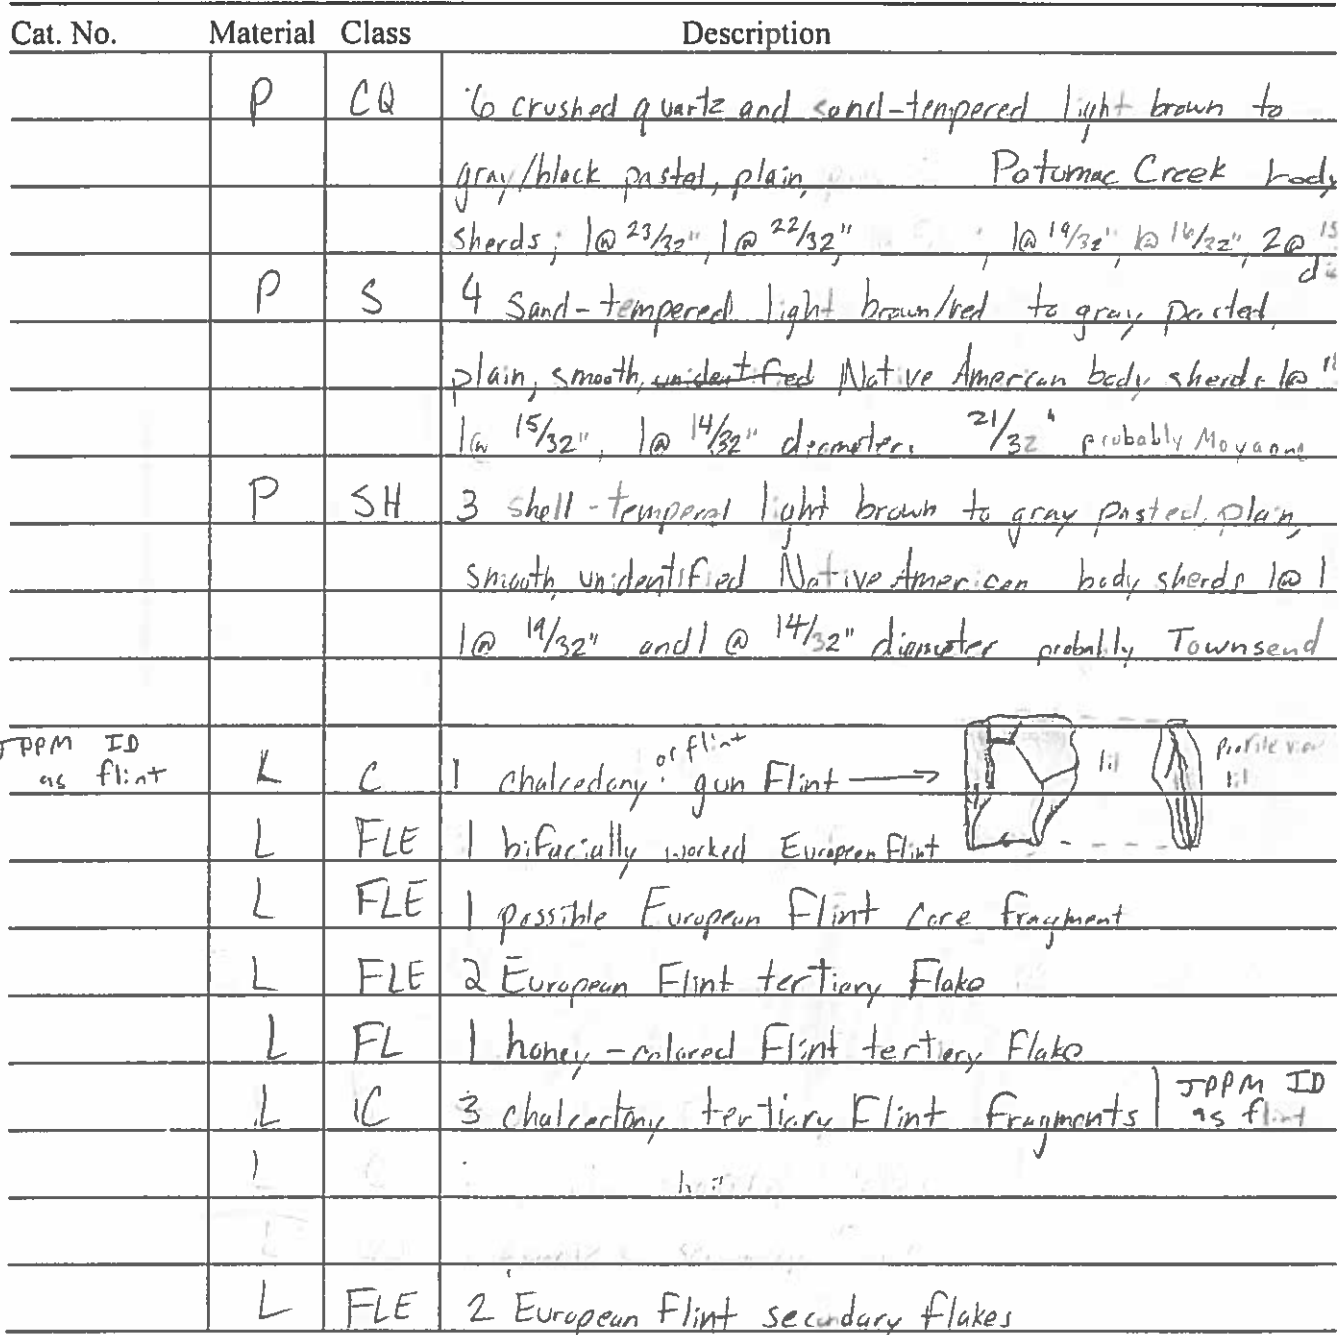 Cat. No. Material Class Description
P CQ 6 crushed quartz and sand-tempered light brown to
gray/black pasted, plain, Potomac Creek body
sherds; 1@ 23/32", 1@ 22/32", 1@ 19/32", 1@ 16/32", 2@ 15
P S 4 Sand-tempered light brown/red to gray pasted
plain, smooth, unidentified Native American body sherds 1@
1@ 15/32", 1@ 14/32" diameter. 21/32" probably Moyaone
P SH 3 shell-tempered light brown to gray pasted, plain,
smooth, unidentified Native American body sherds 1@ 1
1@ 19/32" and 1@ 14/32" diameter probably Townsend
JPPM ID
as flint K C 1 chalcedony or flint gun Flint 1:1 profile view 1:1
L FLE 1 bifacially worked European Flint
L FLE 1 possible European Flint Core fragment
L FLE 2 European Flint tertiary Flake
L FL 1 honey-colored Flint tertiary Flake
L C 3 chalcedony tertiary Flint Fragments JPPM ID
as flint
L FLE 2 European Flint secondary flakes